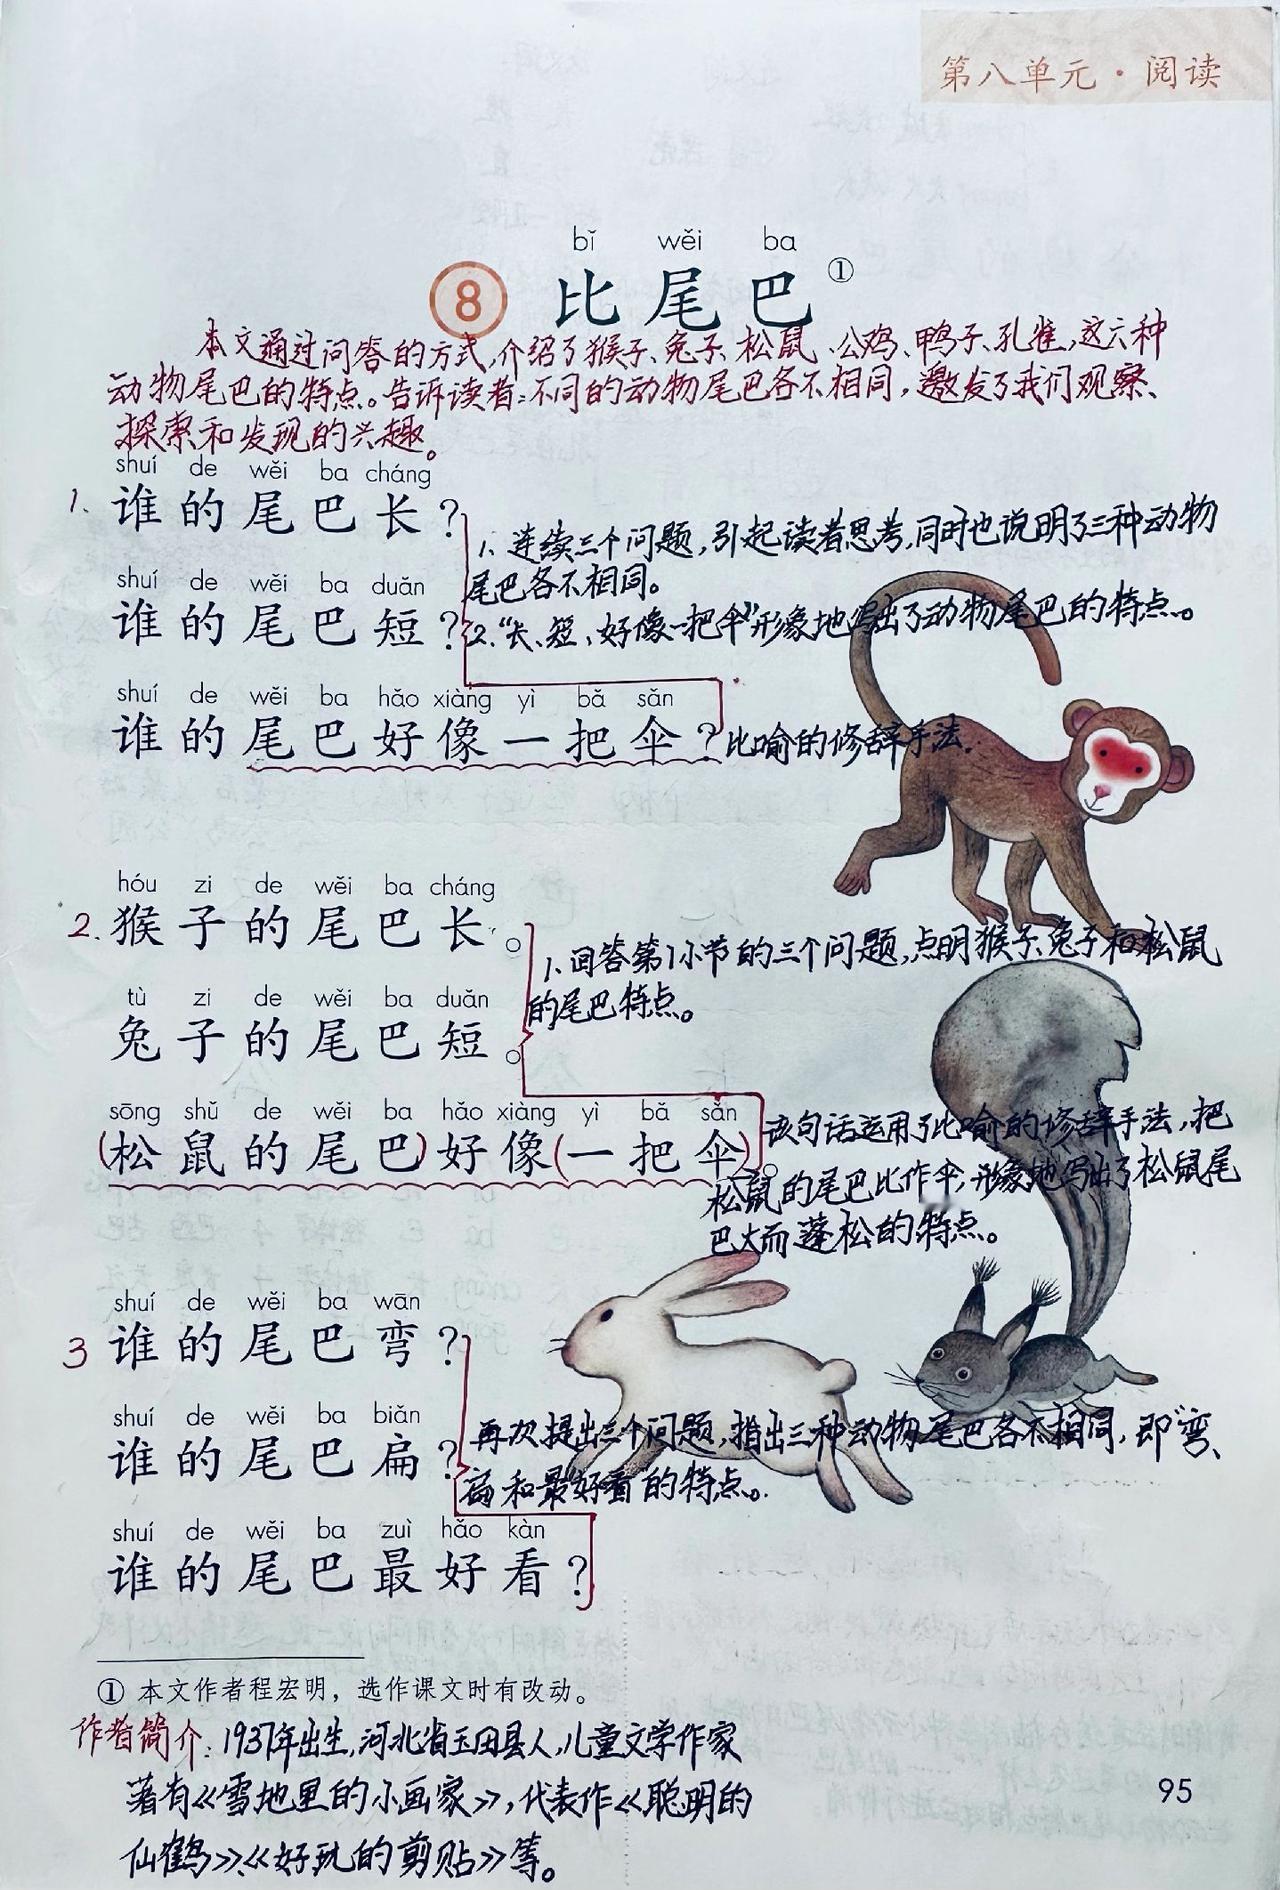 第八单元·阅读
bǐ wěi ba
8 比尾巴①
本文通过问答的方式,介绍了猴子、兔子、松鼠、公鸡、鸭子、孔雀,这六种
动物尾巴的特点。告诉读者:不同的动物尾巴各不相同,激发了我们观察、
探索和发现的兴趣。
shuí de wěi ba cháng
1. 谁的尾巴长?
1、连续三个问题,引起读者思考,同时也说明了三种动物
尾巴各不相同。
shuí de wěi ba duǎn
谁的尾巴短?
2、“长、短、好像一把伞”形象地写出了动物尾巴的特点。
shuí de wěi ba hǎo xiàng yì bǎ sǎn
谁的尾巴好像一把伞?
比喻的修辞手法.
hóu zi de wěi ba cháng
2. 猴子的尾巴长。
1、回答第1小节的三个问题,点明猴子、兔子和松鼠
的尾巴特点。
tù zi de wěi ba duǎn
兔子的尾巴短。
sōng shǔ de wěi ba hǎo xiàng yì bǎ sǎn
(松鼠的尾巴)好像(一把伞)。
该句话运用了比喻的修辞手法,把
松鼠的尾巴比作伞,形象地写出了松鼠尾
巴大而蓬松的特点。
shuí de wěi ba wān
3 谁的尾巴弯?
shuí de wěi ba biǎn
谁的尾巴扁?
再次提出三个问题,指出三种动物尾巴各不相同,即“弯、
扁和最好看”的特点。
shuí de wěi ba zuì hǎo kàn
谁的尾巴最好看?
① 本文作者程宏明,选作课文时有改动。
作者简介:1937年出生,河北省玉田县人,儿童文学作家
著有《雪地里的小画家》,代表作《聪明的
仙鹤》《好玩的剪贴》等。
95